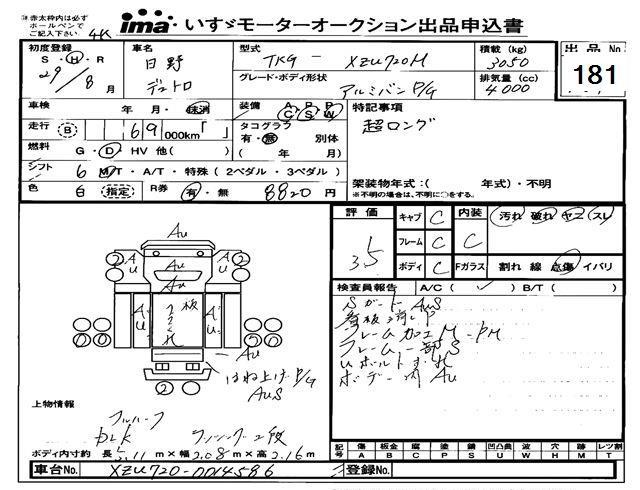 ※赤太枠内は必ず
ボールペンで
ご記入下さい。
4K
ima いすゞモーターオークション出品申込書
初度登録
S・H・R
29/8月
車名
日野
デュトロ
型式
TKG-XZU720M
グレード・ボディ形状
アルミバン P/G
積載 (kg)
3050
排気量 (cc)
4000
出品No
181
車検 年・月・抹消
装備 A/C P/S P/W
特記事項
超ロング
走行 B 69 000km「 」
タコグラフ
有・無 別体
( 年 月)
燃料 G・D・HV 他( )
シフト 6 M/T・A/T・特殊 (2ペダル・3ペダル)
架装物年式:( 年式)・不明
※不明の場合は、不明に○をする。
色 白 指定 R券 有・無 8820円
評価 3.5
キャブ C 内装 C 汚れ 破れ ヤニ スレ
フレーム C
ボディ C Fガラス 割れ 線 点傷 イバリ
検査員報告 A/C( ✓ ) B/T( )
Sガード AuS
フレーム加工M・PM
フレーム一部S
ボデー内 Au
Au
はね上げ P/G
AuS
上物情報
フルハーフ
ボディ内寸約 長5.11m×幅2.08m×高2.16m
記号 傷A 板金B 腐C 塗P 錆S 凹凸曲U 波W 穴H 跡M レツ割T
車台No. XZU720-0014586 登録No.